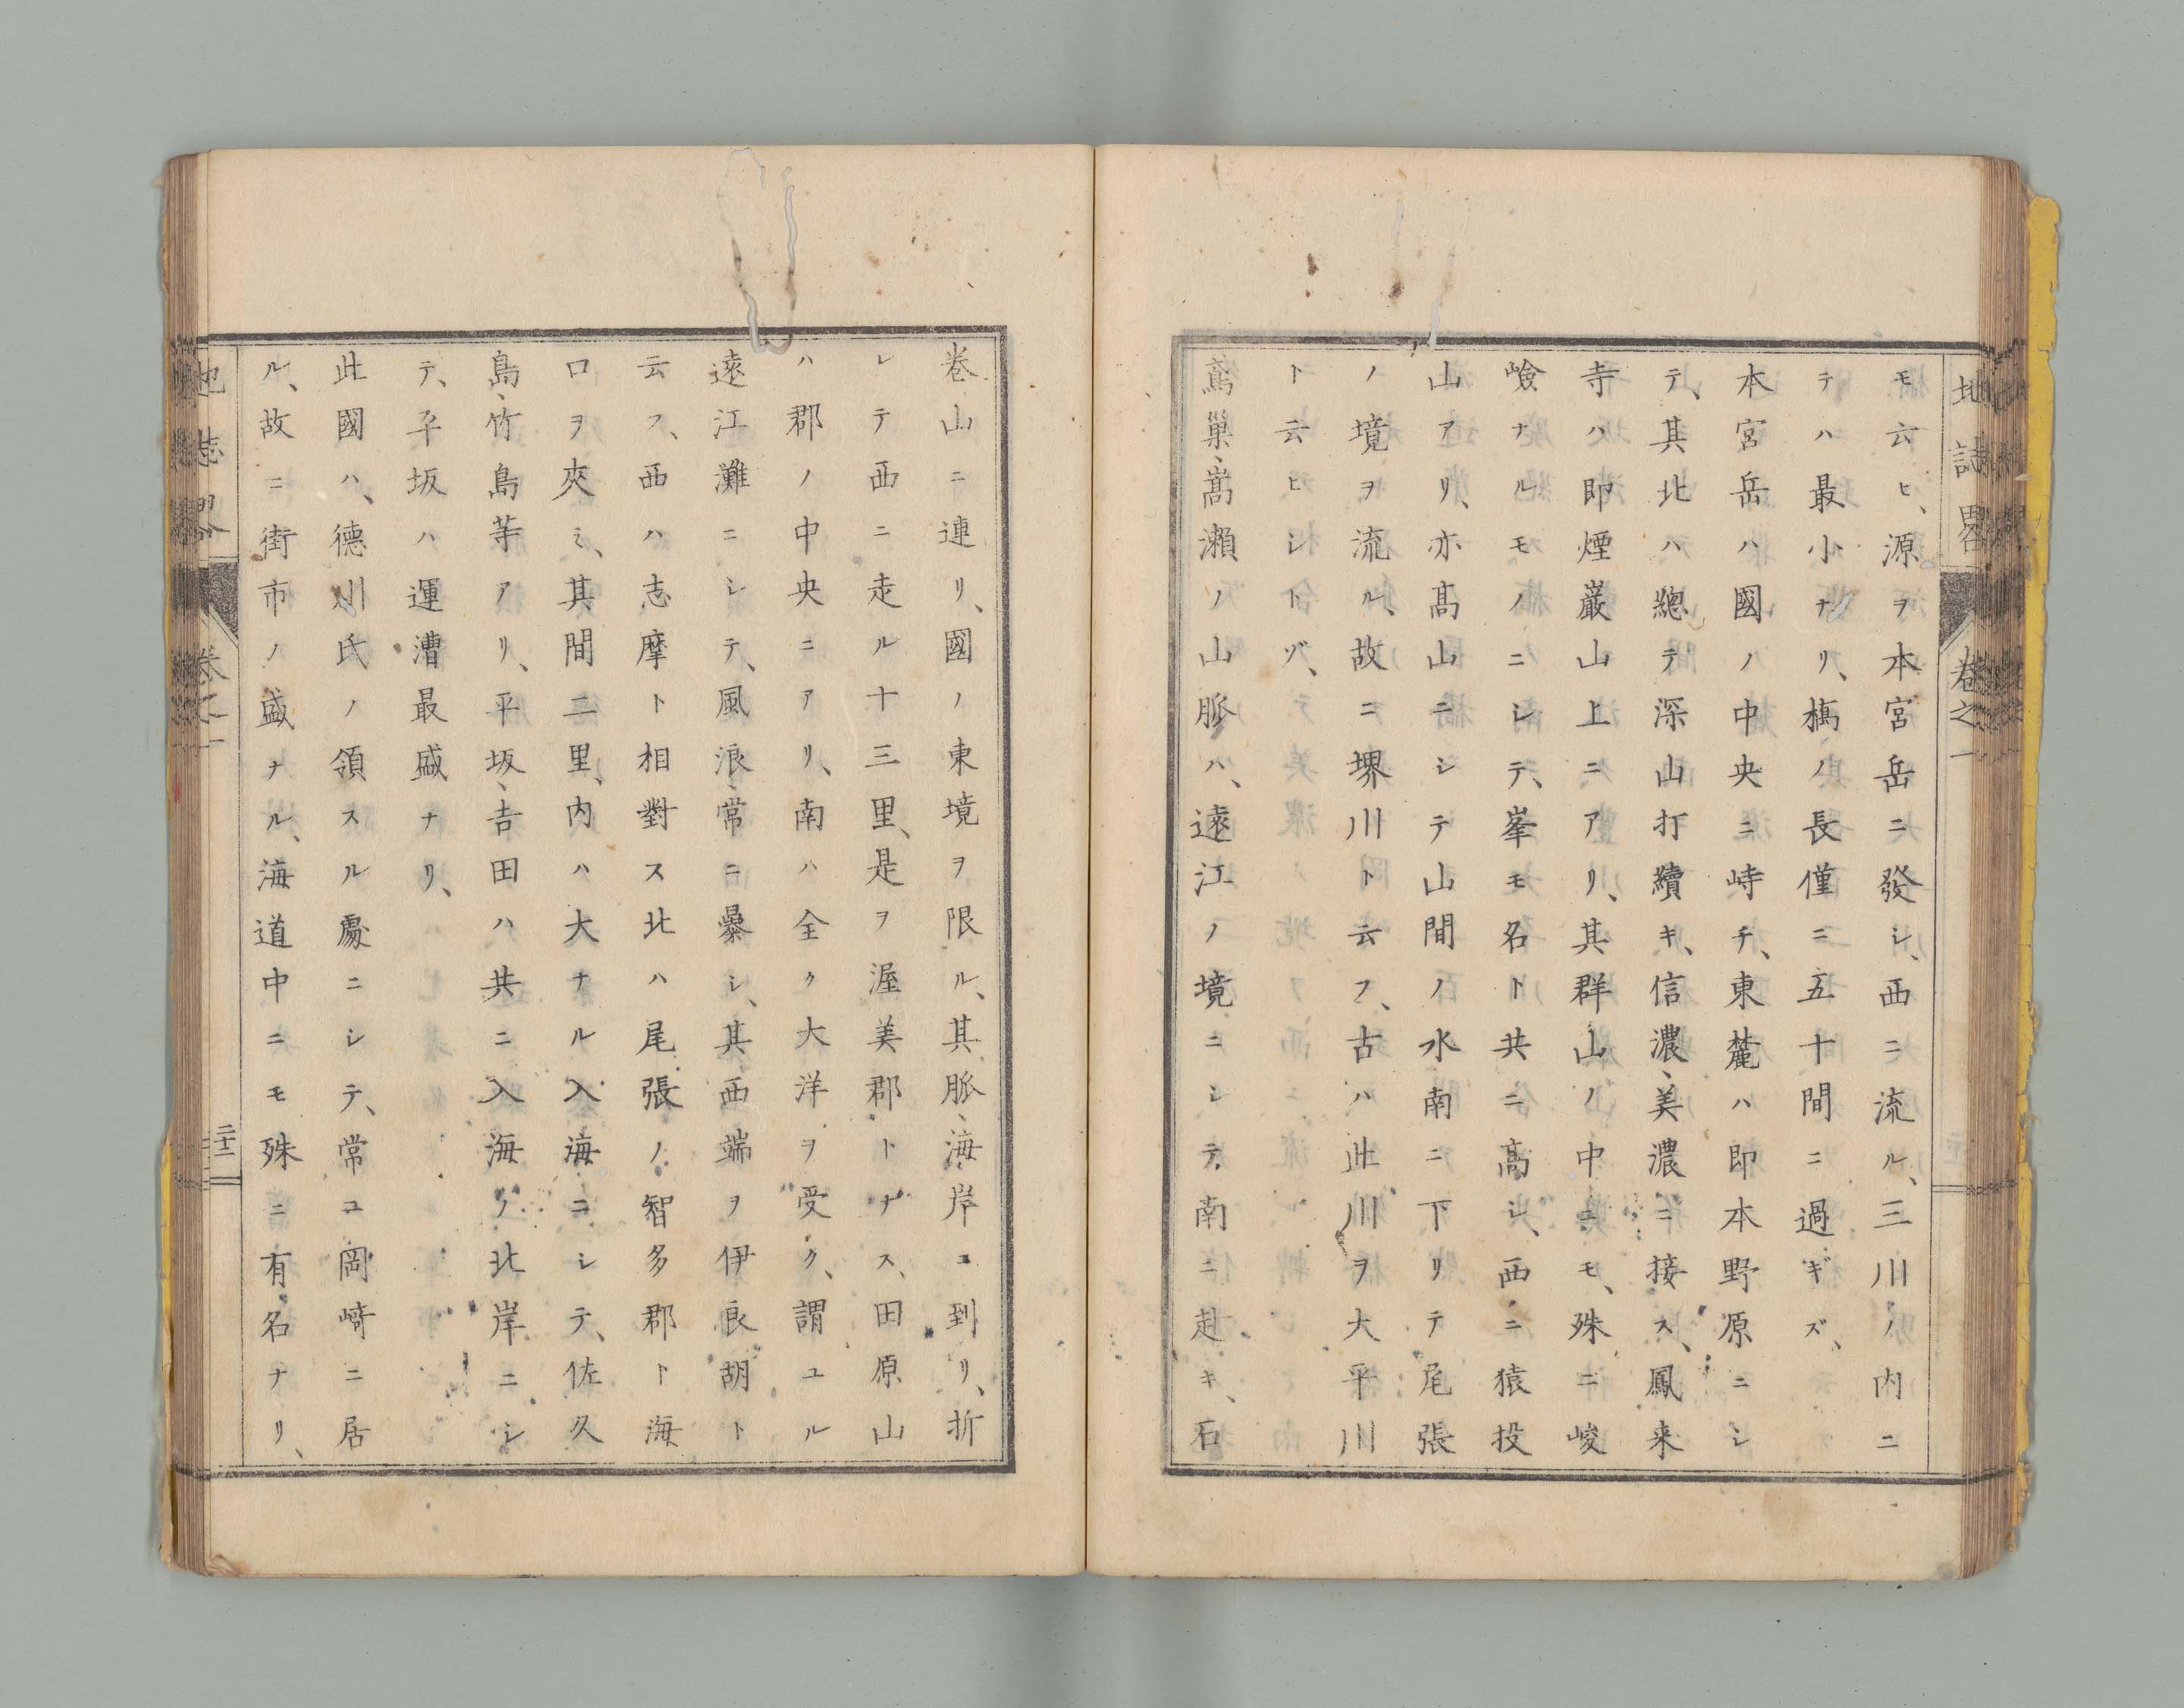 地誌畧
卷之一
モ云ヒ、源ヲ本宮岳ニ發シ、西ニ流ル、三川ノ内ニ
テハ最小ナリ、橋ノ長僅ニ五十間ニ過ギズ、
本宮岳ハ國ノ中央ニ峙チ、東麓ハ即本野原ニシ
テ、其北ハ總テ深山打續キ、信濃、美濃ニ接ス、鳳来
寺ハ即煙巌山上ニアリ、其群山ノ中ニモ、殊ニ峻
嶮ナルモノニシテ、峯モ名ト共ニ高シ、西ニ猿投
山アリ、亦髙山ニシテ山間ノ水南ニ下リテ尾張
ノ境ヲ流ル、故ニ堺川ト云フ、古ハ此川ヲ大平川
ト云ヒシトゾ、
鳶巢、嵩瀬ノ山脈ハ、遠江ノ境ニシテ南ニ赴キ、石
卷山ニ連リ、國ノ東境ヲ限ル、其脈、海岸ニ到リ、折
レテ西ニ走ル十三里、是ヲ渥美郡トナス、田原山
ハ郡ノ中央ニアリ、南ハ全ク大洋ヲ受ク、謂ユル
遠江灘ニシテ、風浪、常ニ暴シ、其西端ヲ伊良胡ト
云フ、西ハ志摩ト相對ス北ハ尾張ノ智多郡ト海
口ヲ夾ミ、其間二里、内ハ大ナル入海ニシテ、佐久
島、竹島等アリ、平坂、吉田ハ共ニ入海ノ北岸ニシ
テ、平坂ハ運漕最盛ナリ、
此國ハ、德川氏ノ領スル處ニシテ、常ニ岡﨑ニ居
ル、故ニ街市ノ盛ナル、海道中ニモ殊ニ有名ナリ、
地誌畧
卷之一
二十二